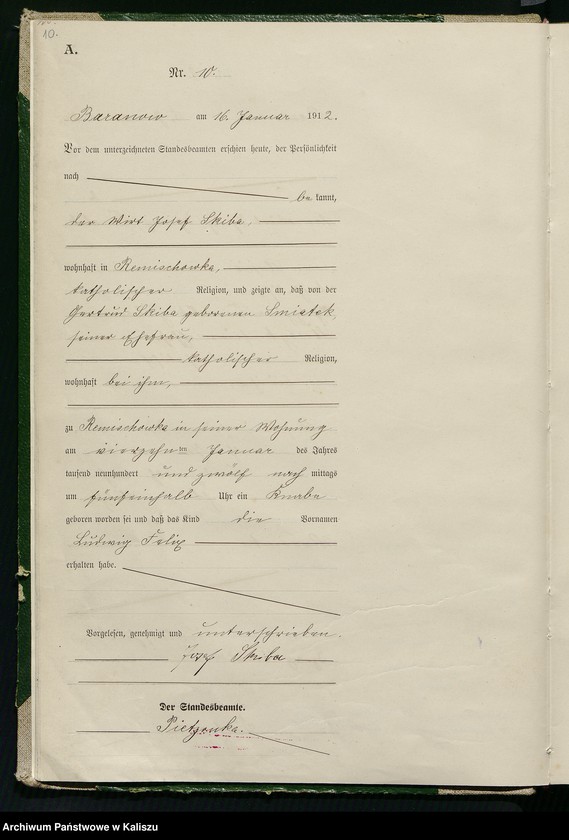 10.
A.
Nr. 10.
Baranow am 16. Januar 1912.
Vor dem unterzeichneten Standesbeamten erschien heute, der Persönlichkeit
nach
be kannt,
der Wirt Josef Skiba,
wohnhaft in Remischowka,
katholischer Religion, und zeigte an, daß von der
Gertrud Skiba geborenen Smiatek,
seiner Ehefrau,
katholischer Religion,
wohnhaft bei ihm,
zu Remischowka in seiner Wohnung
am vierzehn ten Januar des Jahres
tausend neunhundert und zwölf nach mittags
um fünfeinhalb Uhr ein Knabe
geboren worden sei und daß das Kind die Vornamen
Ludwig Felix
erhalten habe.
Vorgelesen, genehmigt und unterschrieben.
Jozef Skiba
Der Standesbeamte.
Pietzonka.
Archiwum Państwowe w Kaliszu